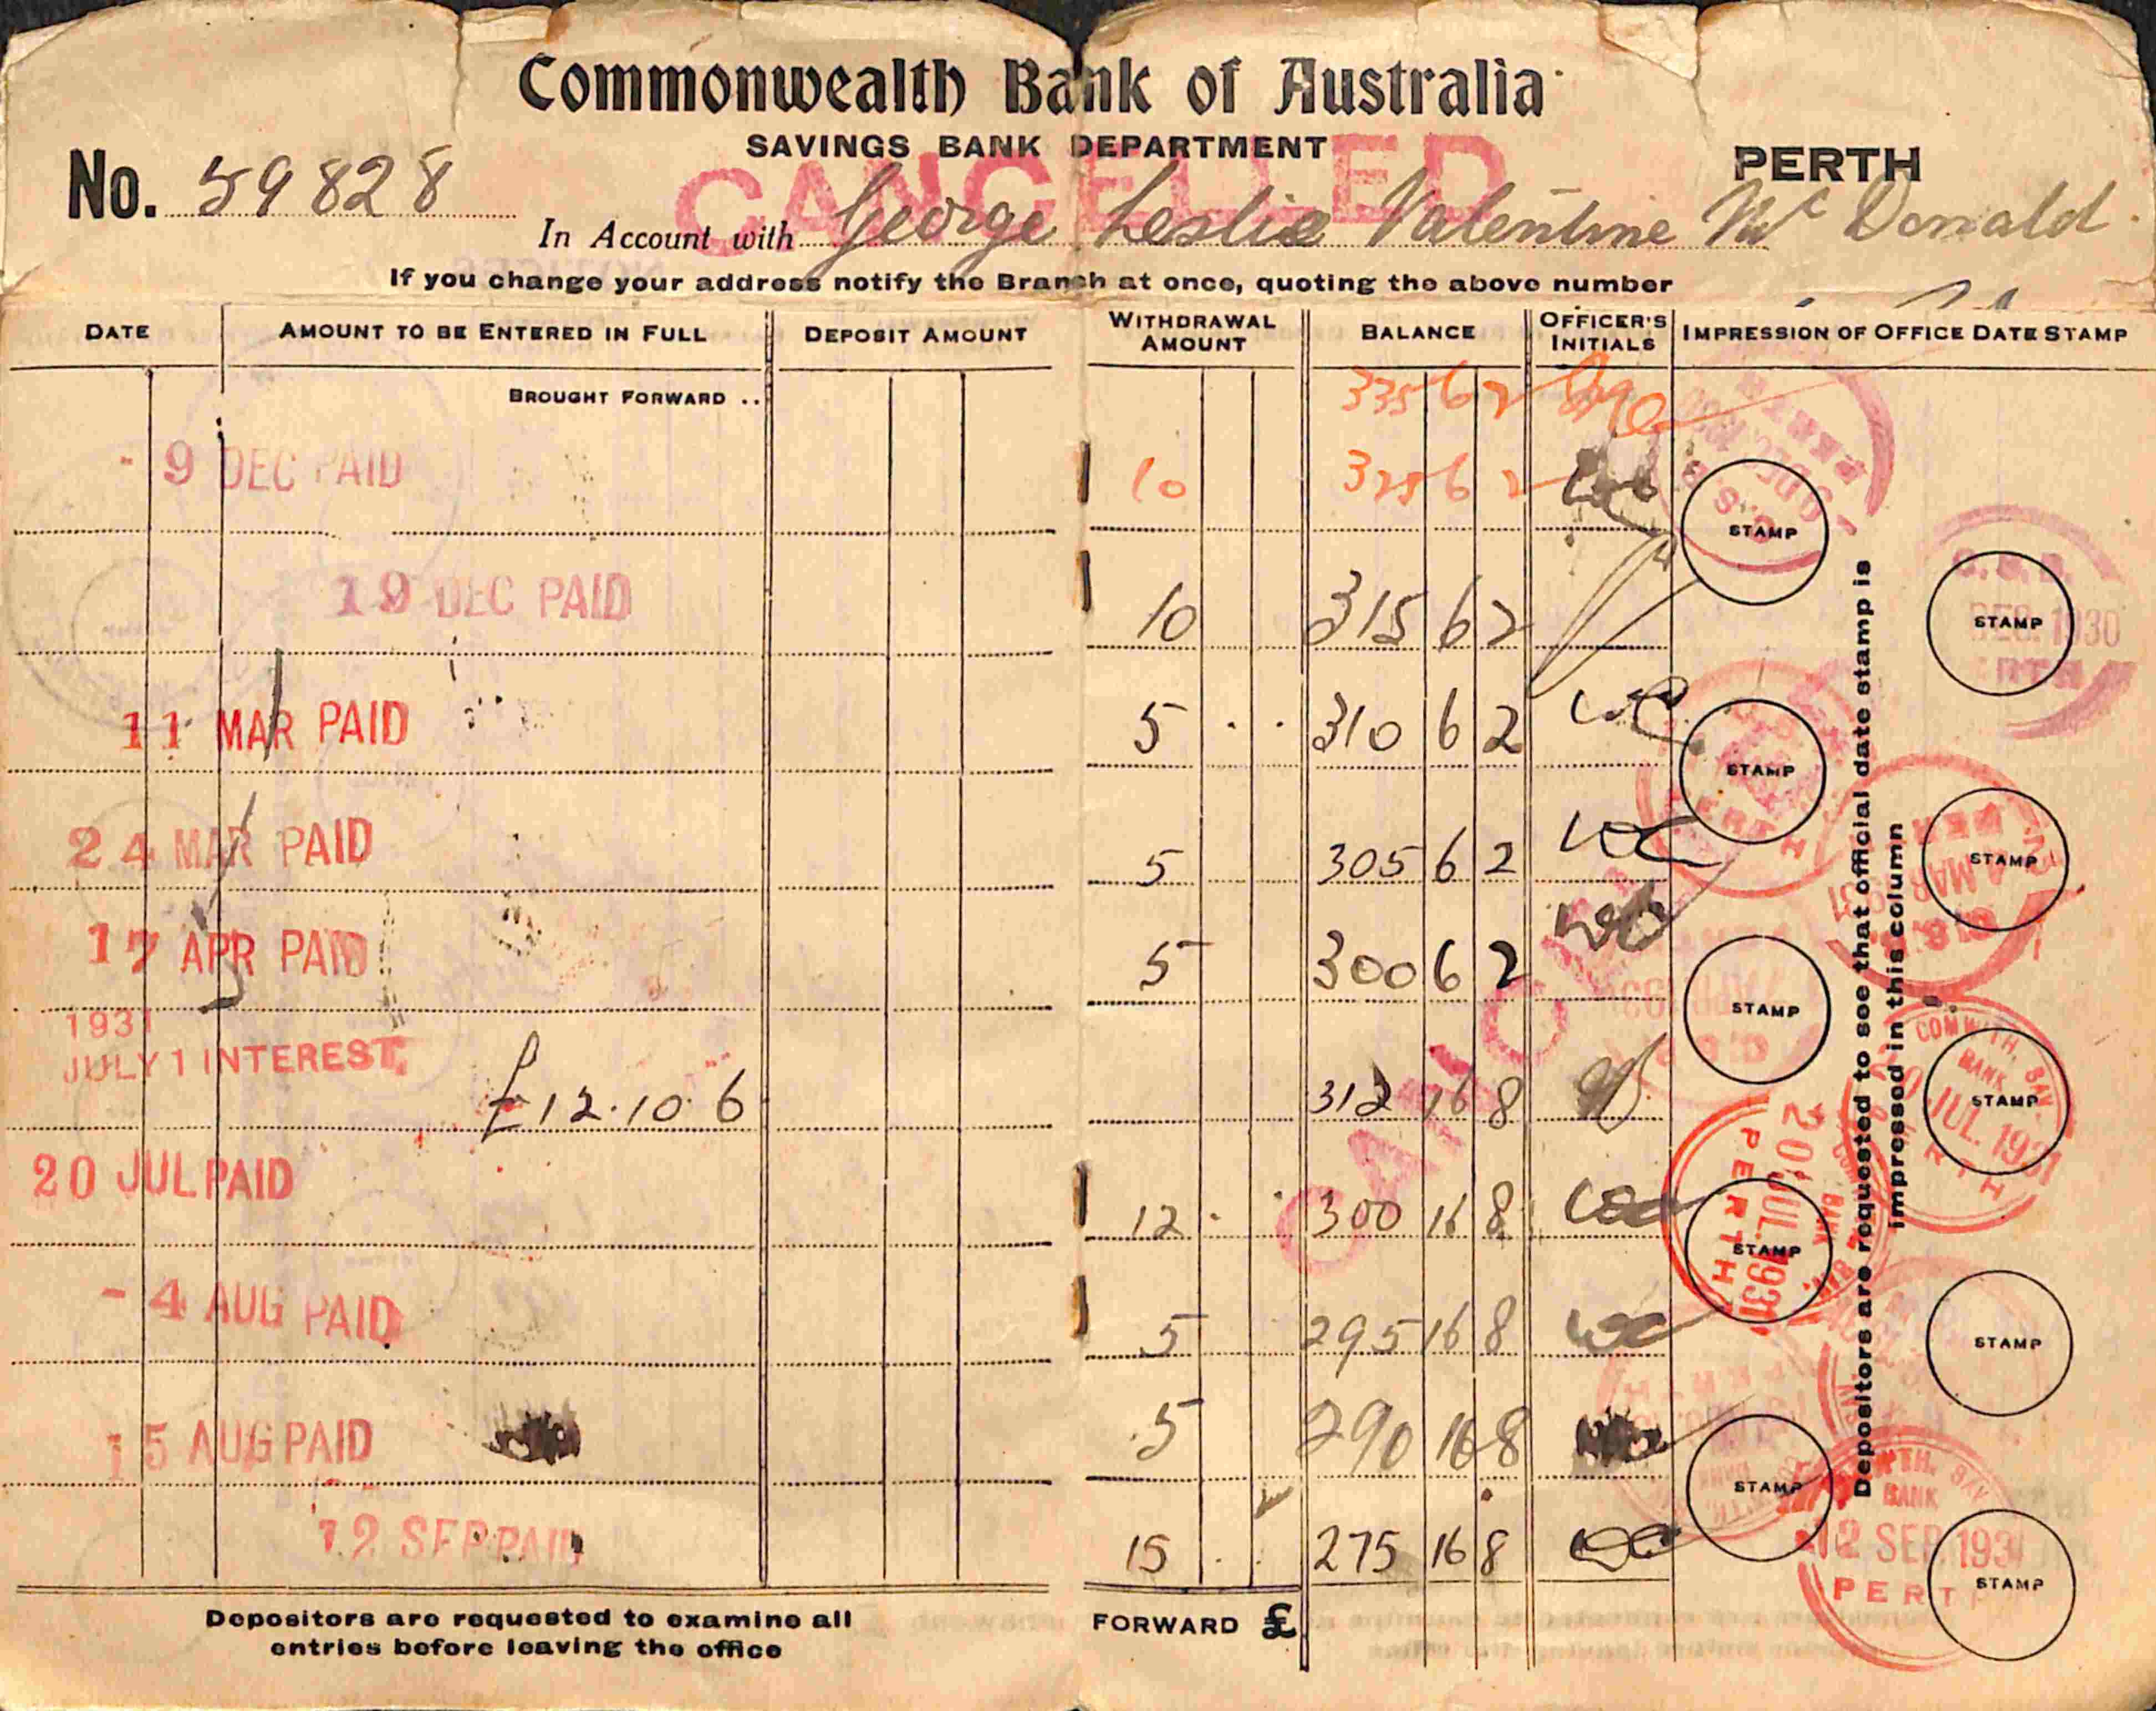 Commonwealth Bank of Australia
SAVINGS BANK DEPARTMENT
CANCELLED
PERTH
No. 59828
In Account with George Leslie Valentine McDonald
If you change your address notify the Branch at once, quoting the above number
DATE AMOUNT TO BE ENTERED IN FULL DEPOSIT AMOUNT WITHDRAWAL AMOUNT BALANCE OFFICER'S INITIALS IMPRESSION OF OFFICE DATE STAMP
BROUGHT FORWARD .. 335 6 2
- 9 DEC PAID 10 325 6 2
STAMP
19 DEC PAID 10 315 6 2
STAMP
DEC. 1930
11 MAR PAID 5 . . 310 6 2
STAMP
24 MAR PAID 5 305 6 2
STAMP
17 APR PAID 5 300 6 2
STAMP
1931
JULY 1 INTEREST.
£12.10.6 312 16 8
STAMP
COMWTH. SAV. BANK
JUL. 1931
20 JUL PAID 12 . . 300 16 8
STAMP
20 JUL. 1931
PERTH
- 4 AUG PAID 5 295 16 8
STAMP
15 AUG PAID 5 290 16 8
STAMP
12 SEP PAID 15 . . 275 16 8
STAMP
BANK
12 SEP 1931
PERT
Depositors are requested to see that official date stamp is
impressed in this column
Depositors are requested to examine all
entries before leaving the office
FORWARD £